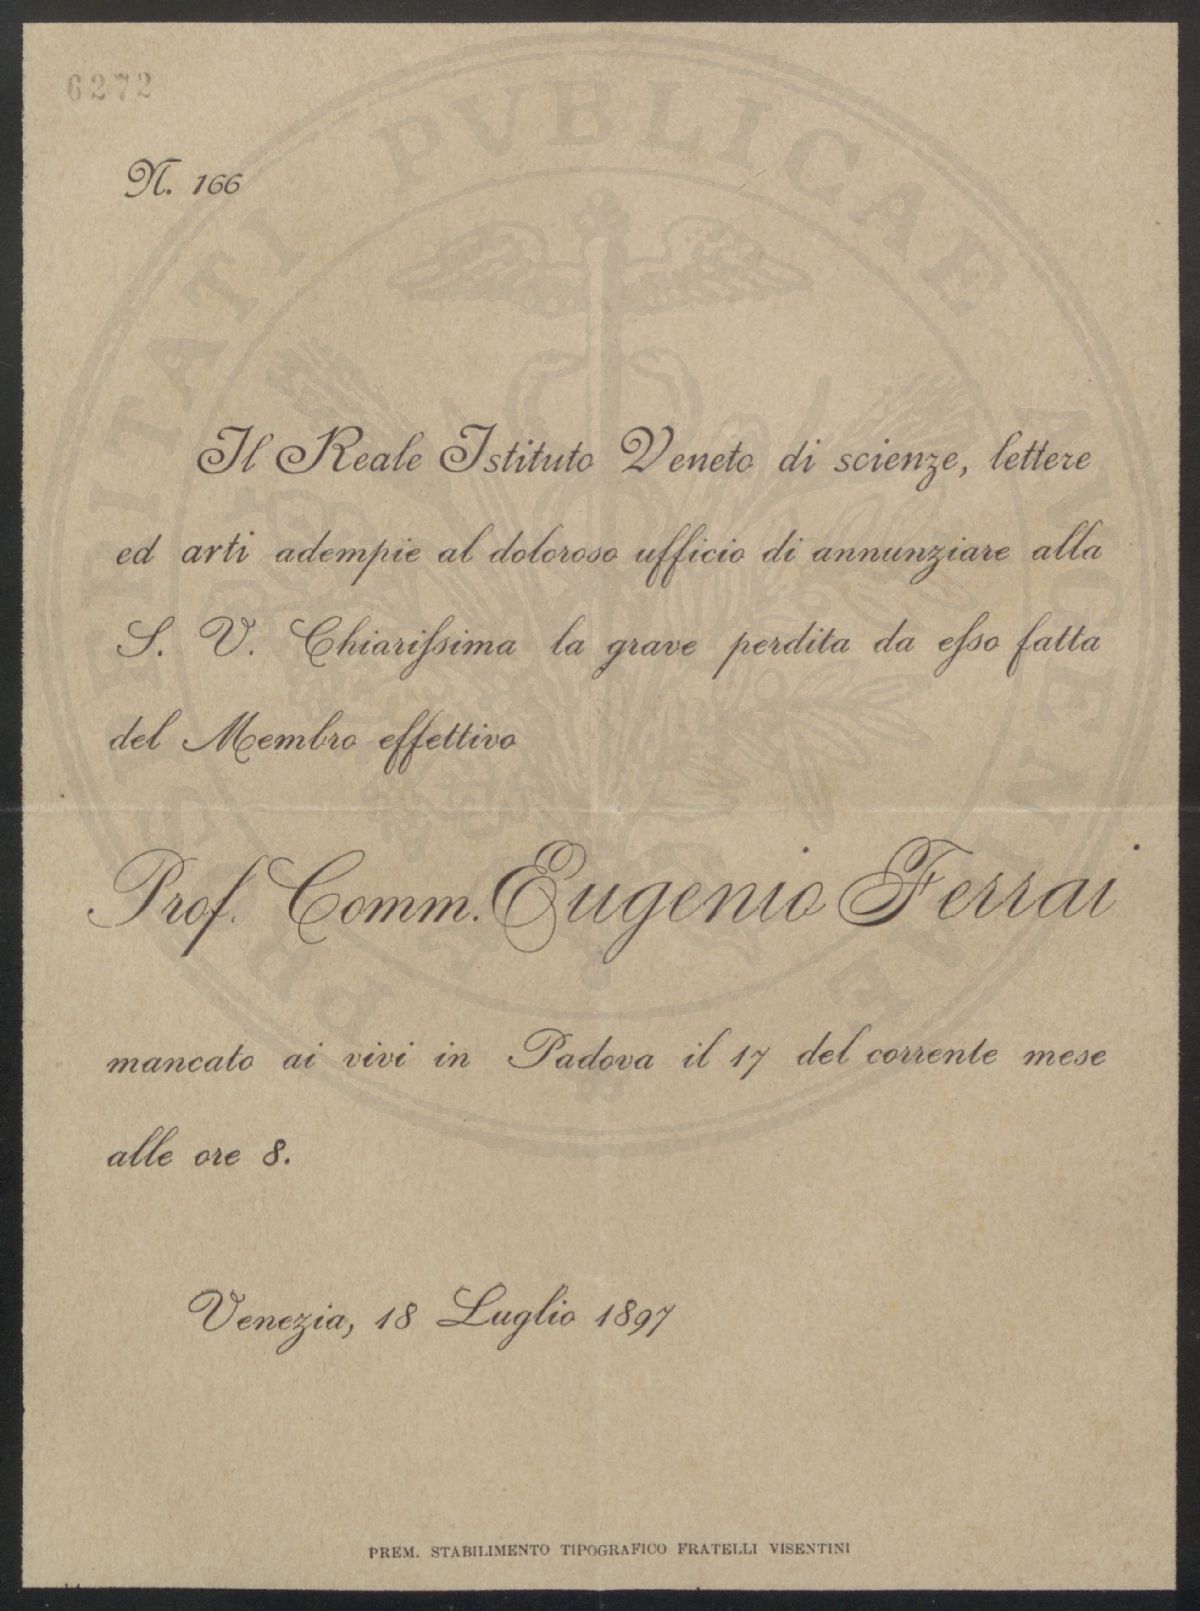 6272
N. 166
Il Reale Istituto Veneto di scienze, lettere
ed arti adempie al doloroso ufficio di annunziare alla
S. V. Chiariſsima la grave perdita da eſso fatta
del Membro effettivo
Prof. Comm. Eugenio Ferrai
mancato ai vivi in Padova il 17 del corrente mese
alle ore 8.
Venezia, 18 Luglio 1897
PREM. STABILIMENTO TIPOGRAFICO FRATELLI VISENTINI
PVBLICAE